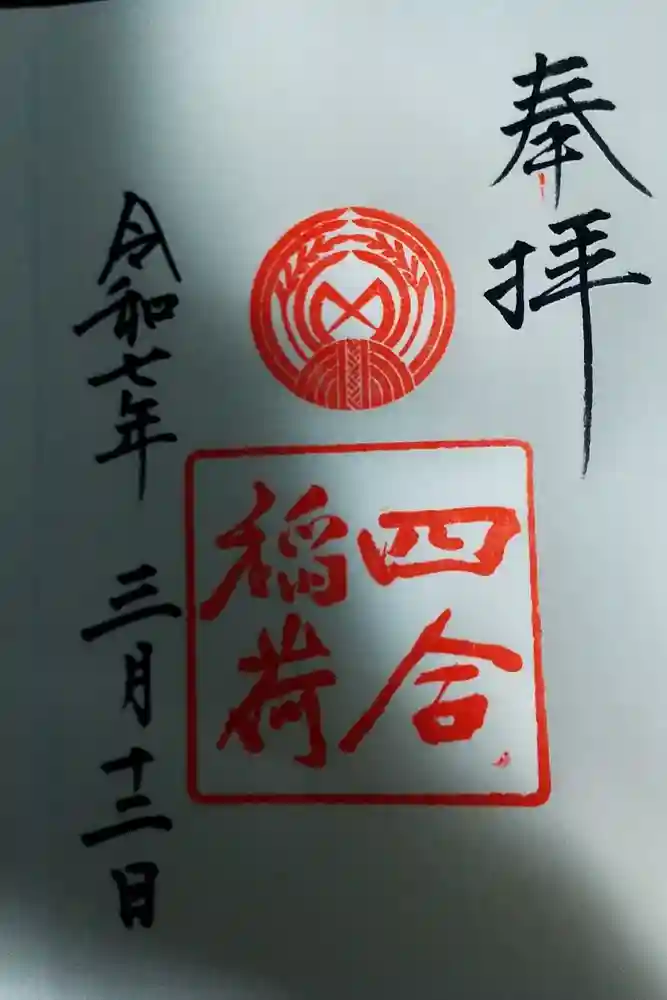 奉拝
四合
稲荷
令和七年 三月十二日